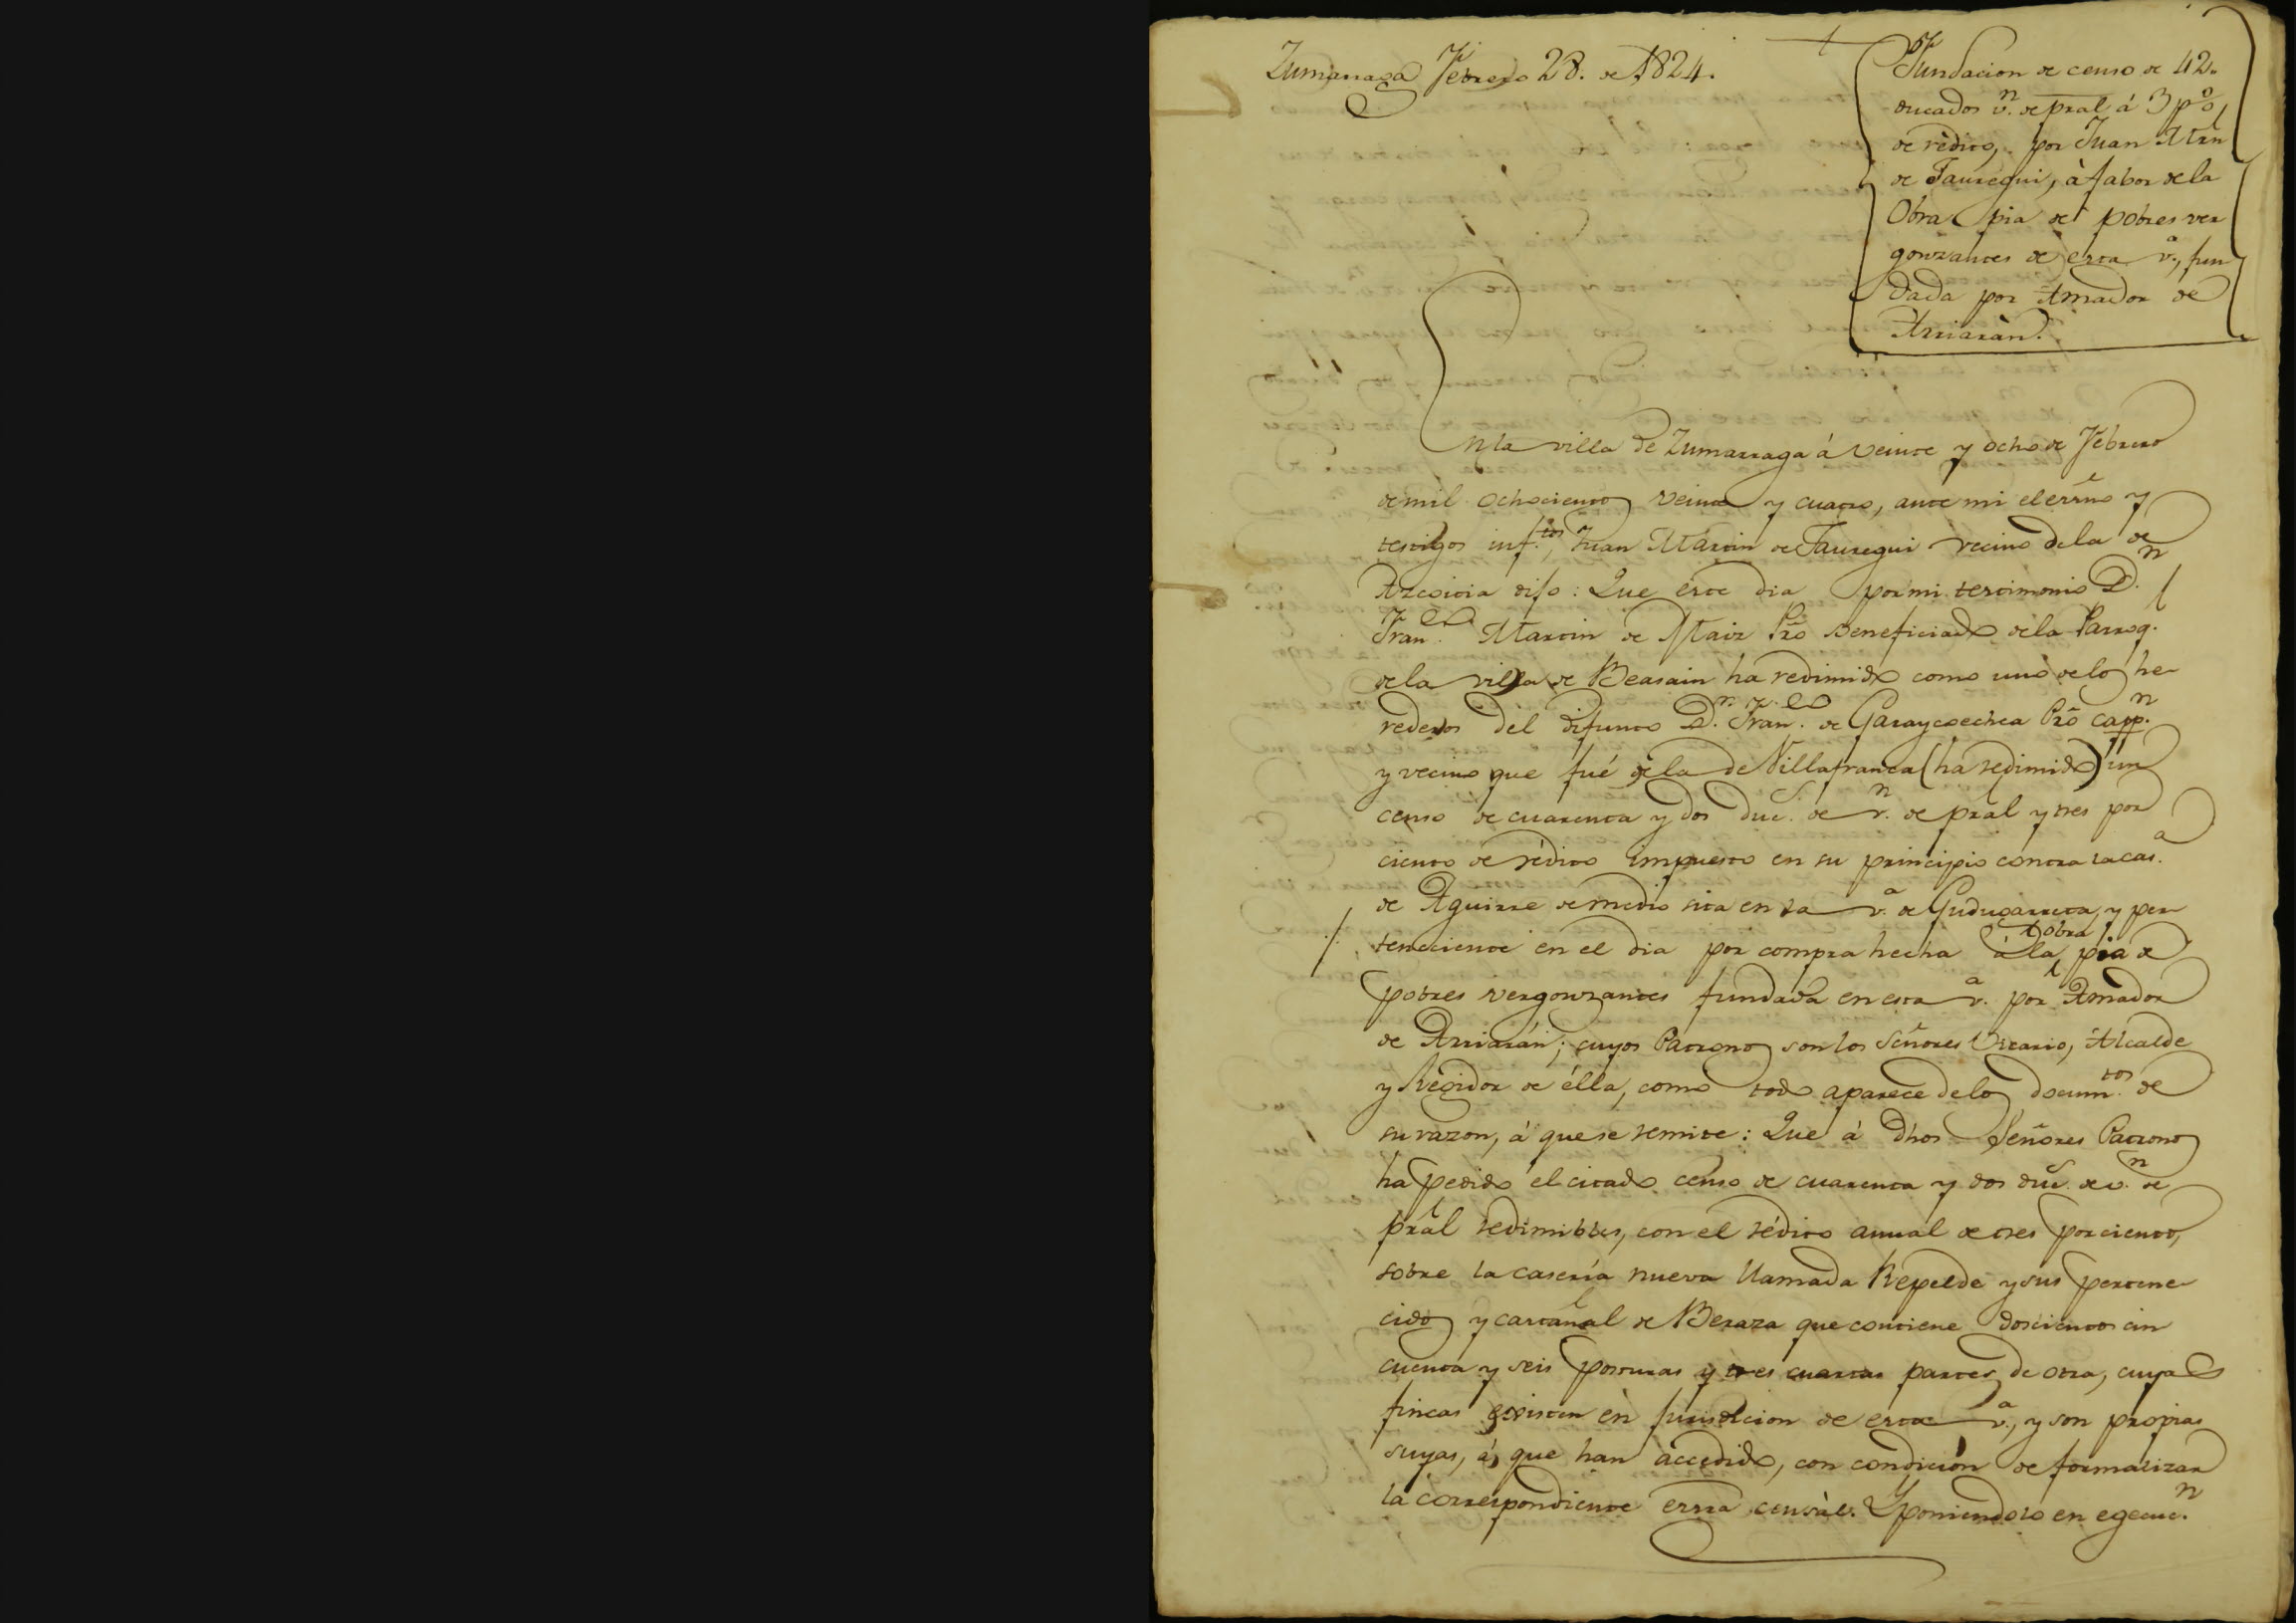 Zumarraga Febrero 28. de 1824.
Fundacion de censo de 42.
ducados v.n de pral á 3 p%
de rédito, por Juan Mrn
de Jauregui, à fabor de la
Obra pia de pobres ver
gonzantes de esta v.a, fun
dada por Amador de
Arriaràn.
En la villa de Zumarraga á veinte y ocho de Febrero
de mil ochocientos veinte y cuatro, ante mi el essno y
testigos inf.tos, Juan Martin de Jauregui vecino de la de
Azcoitia dijo: Que este dia por mi testimonio D.n
Fran.co Martin de Maiz Pro Beneficiado de la Parroq.l
de la villa de Beasain ha redimido como uno de los he
rederos del difunto D.n Fran.co de Garaycoechea Pro capp.n
y vecino que fué de la de Villafranca (ha redimido) un
censo de cuarenta y dos duc.s de v.n de pral y tres por
ciento de rédito impuesto en su principio contra la cas.a
de Aguirre de medio sita en la v.a de Gudugarreta, y per
teneciente en el dia por compra hecha à la obra pia de
pobres vergonzantes fundada en esta v.a por Amador
de Arriarán; cuyos Patronos son los Señores Vicario, Alcalde
y Regidor de élla, como todo aparece de los docum.tos de
su razon, á que se remite: Que á dhos Señores Patronos
ha pedido el citado censo de cuarenta y dos duc.s de v.n de
pral redimibles, con el rédito anual de tres por ciento,
sobre la casería nueva llamada Repelde y sus pertene
cidos y castañal de Beraza que contiene doscientos cin
cuenta y seis posturas y tres cuartas partes de otra, cuyas
fincas existen èn jurisdicion de esta v.a, y son propias
suyas, á que han accedido, con condición de formalizar
la correspondiente essra censàl. Y poniendolo en egecuc.n